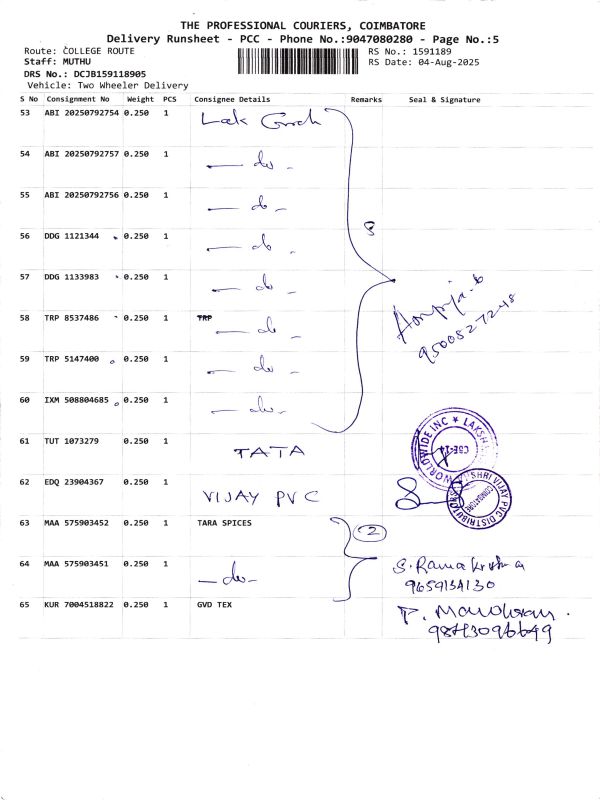 THE PROFESSIONAL COURIERS, COIMBATORE
Delivery Runsheet - PCC - Phone No.:9047080280 - Page No.:5
Route: COLLEGE ROUTE RS No.: 1591189
Staff: MUTHU RS Date: 04-Aug-2025
DRS No.: DCJB159118905
Vehicle: Two Wheeler Delivery
S No Consignment No Weight PCS Consignee Details Remarks Seal & Signature
53 ABI 20250792754 0.250 1 Lak
54 ABI 20250792757 0.250 1 — do -
55 ABI 20250792756 0.250 1 — do -
56 DDG 1121344 0.250 1 — do - 8
57 DDG 1133983 0.250 1 — do -
58 TRP 8537486 0.250 1 TRP — do -
9500527248
59 TRP 5147400 0.250 1 — do -
60 IXM 508804685 0.250 1 — do -
61 TUT 1073279 0.250 1 TATA WORLDWIDE INC ★ CBE-14
62 EDQ 23904367 0.250 1 VIJAY PVC SHRI VIJAY PVC DISTRIBUTORS COIMBATORE
63 MAA 575903452 0.250 1 TARA SPICES 2
64 MAA 575903451 0.250 1 — do - S. Ramakrishna
9659134130
65 KUR 7004518822 0.250 1 GVD TEX P. Manoharan.